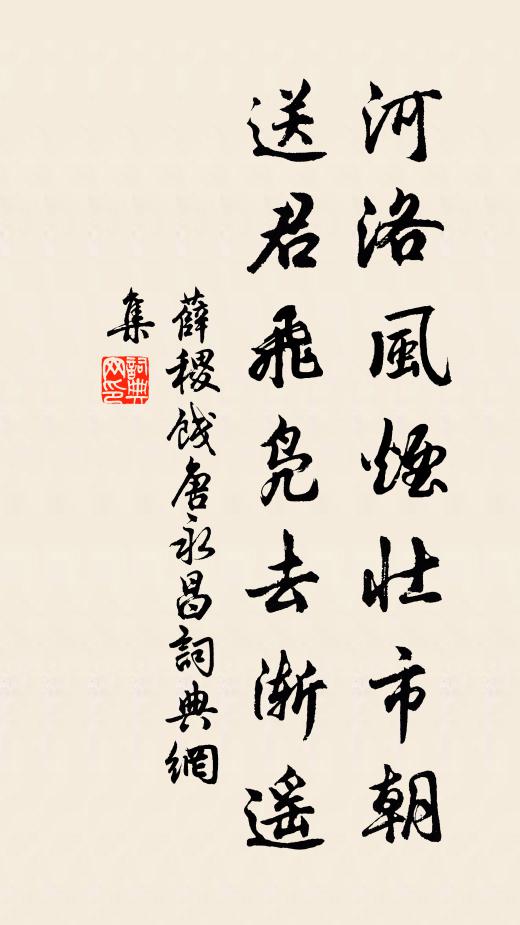 河洛風煙壯市朝
送君飛鳧去漸遥
薛稷餞唐永昌詞典網
集
詞典网印